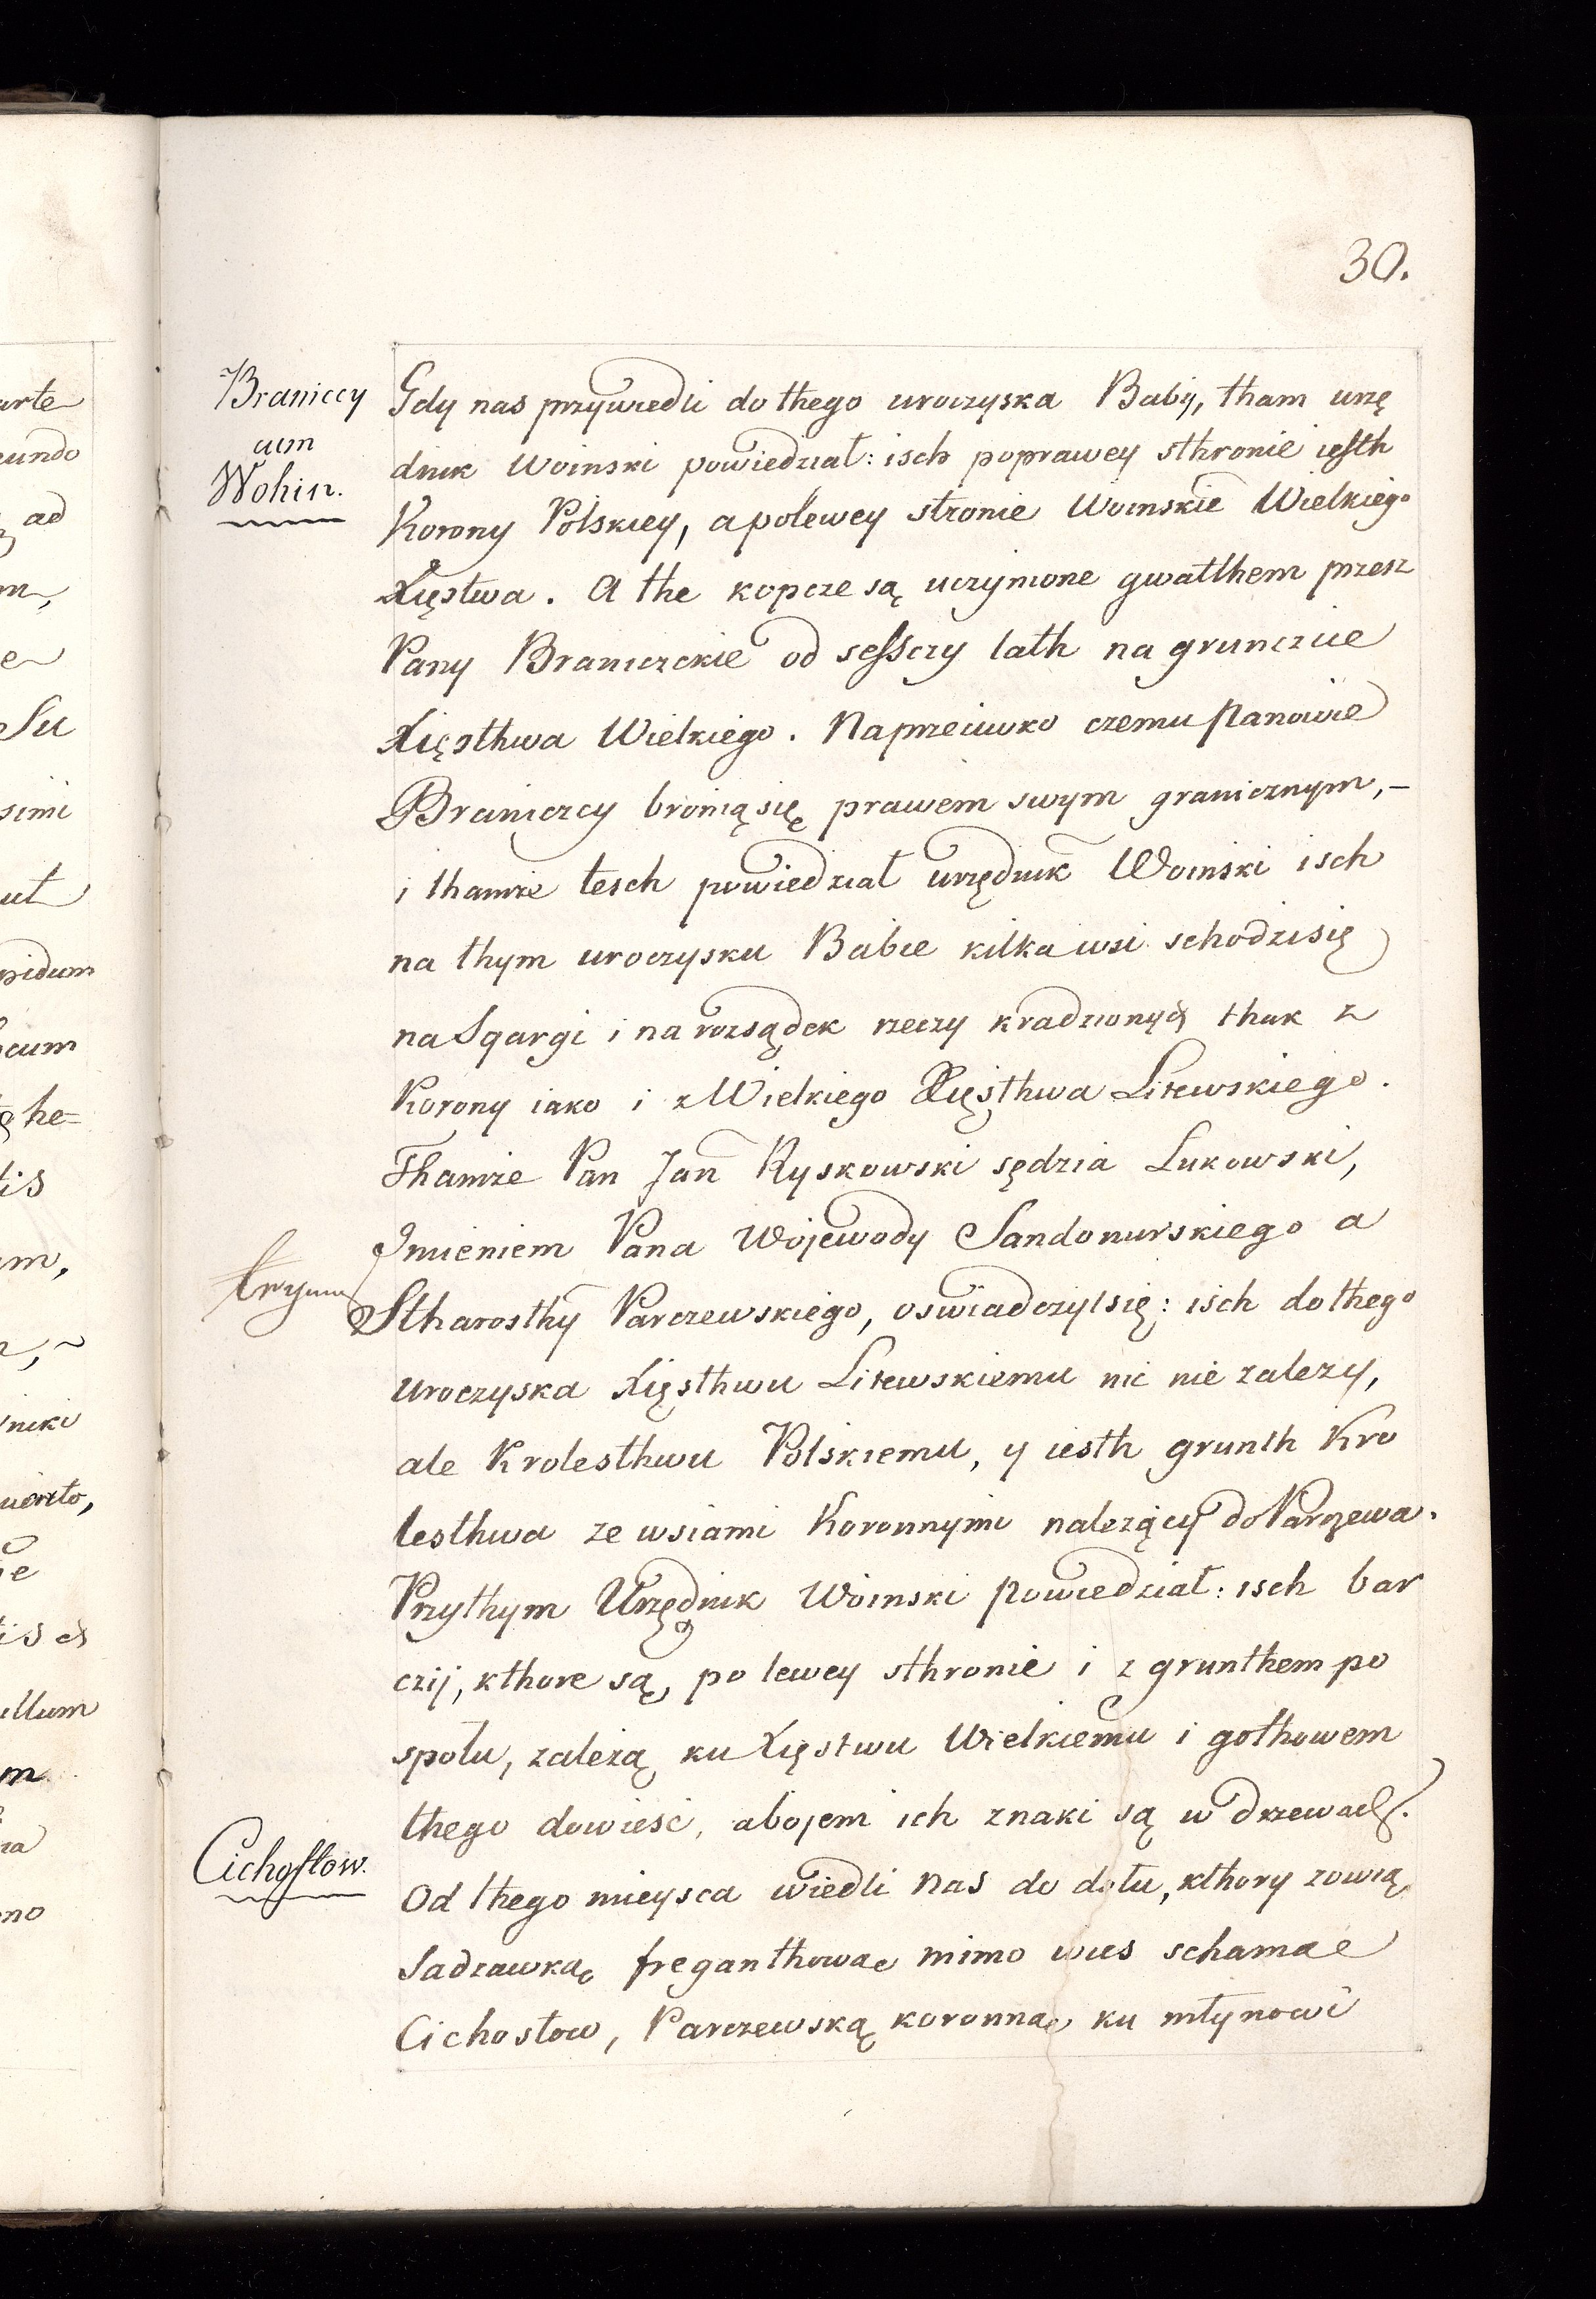 30.
Braniccy
cum
Wohin.
Gdy nas przywiedli do thego uroczyska Babij, tham urzę
dnik Woinski powiedział: isch poprawey sthronie iesth
Korony Polskiey, apolewey stronie Woinskie Wielkiego
Xięstwa. A the kopcze są uczynione gwałthem przesz
Pany Braniczckie od sesсzy lath na grunczie
Xięsthwa Wielkiego. Naprzeciwko czemu Panowie
Braniczcy bronią się prawem swym granicznym,-
i thamże tesch powiedział urzędnik Woinski isch
na thym uroczysku Babie kilka wsi schodzi się
na Sqargi i na rozsądek rzeczy kradzionych thak z
Korony iako i z Wielkiego Xięsthwa Litewskiego.
Thamże Pan Jan Ryskowski sędzia Lukowski,
Jmieniem Pana Wojewody Sandomirskiego a
Stharosthy Parczewskiego, oswiadczył się: isch do thego
uroczyska Xięsthwu Litewskiemu nic nie zależy,
ale Krolesthwu Polskiemu, y iesth grunth Kro
lesthwa ze wsiami Koronnymi należący do Parczewa.
Przythym Urzędnik Woinski powiedział: isch bar
czij, kthore są, po lewey sthronie i z grunthem po
społu, zależą ku Xięstwu Wielkiemu i gothowem
thego dowieść, abojem ich znaki są w drzewach.
Cichostow.
Od thego mieysca wiedli nas do dołu, kthory zową
Sadzawką freganthową mimo wies schamą
Cichostow, Parczewską koronną ku młynowi